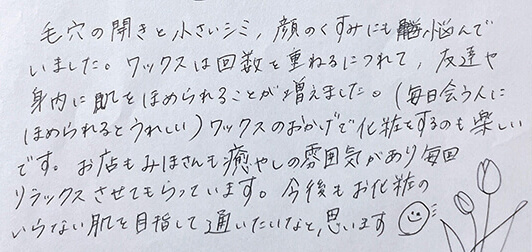 毛穴の開きと小さいシミ，顔のくすみにも悩んで
いました。ワックスは回数を重ねるにつれて，友達や
身内に肌をほめられることが増えました。(毎日会う人に
ほめられるとうれしい)ワックスのおかげで化粧をするのも楽しい
です。お店もみほさんも癒やしの雰囲気があり毎回
リラックスさせてもらっています。今後もお化粧の
いらない肌を目指して通いたいなと，思います